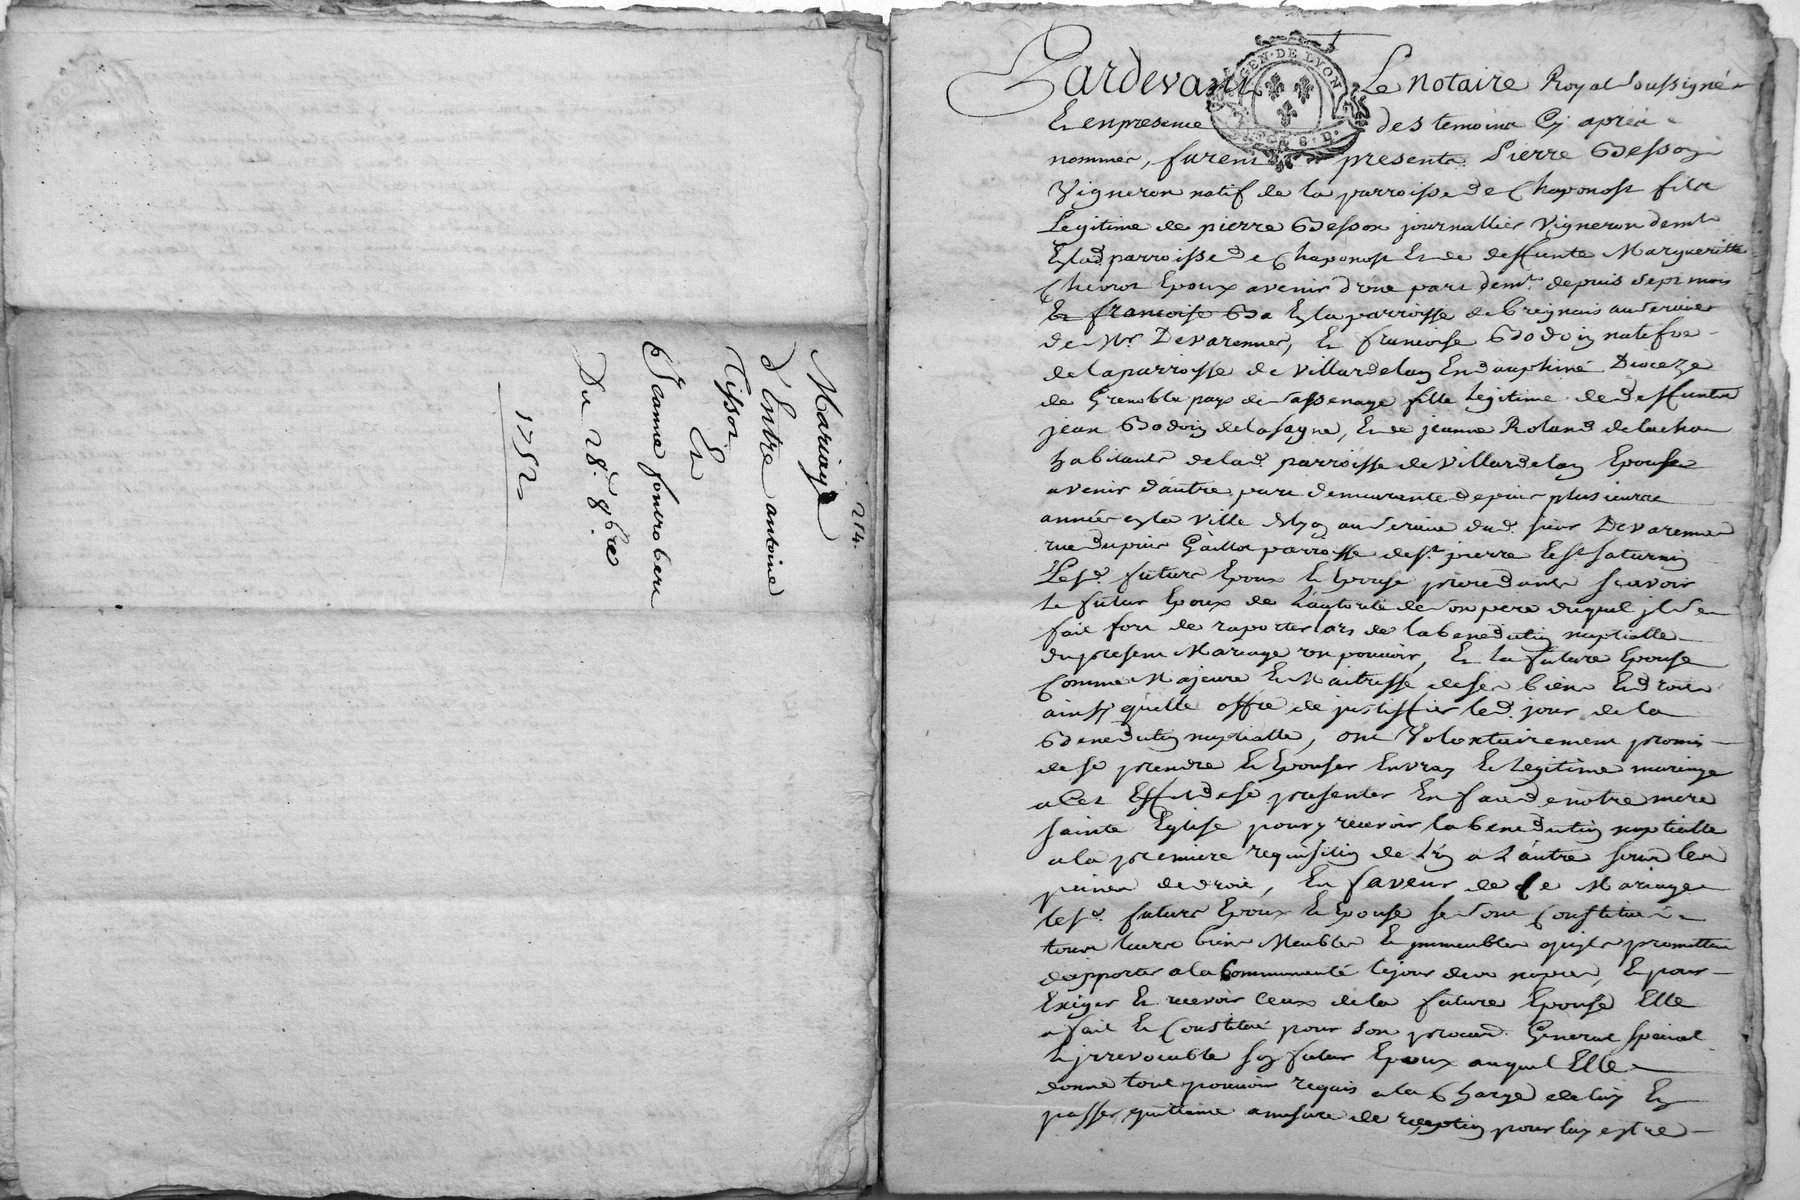 214.
Mariage
d'Entre antoine
Tissot
Et
Jeanne fontrobert
Du 28e. 8bre
1752
GEN · DE LYON
Pardevant Le notaire Royal soussigné
Et en presence des temoins Cy aprés
nommés, furent presents Pierre Besson
Vigneron natif de la parroisse de Chaponost fils
Legitime de pierre Besson journallier Vigneron demt
En lad parroisse de Chaponost Et de deffunte Margueritte
Epoux avenir d'une part demt. depuis sept mois
Et francoise Bo En la parroisse de brignais au service
de Mr. Devarennes, Et francoise Bodoin natifve
de la parroisse de Villardelan En dauphiné Dioceze
de Grenoble pays de Sassenage fille Legitime de deffunts
jean Bodoin de la fayne, Et de jeanne Roland
habitants de lad. parroisse de Villardelan Epouse
avenir d'autre part demeurante depuis plusieurs
années en la Ville de lyon au service dud. sieur Devarennes
rue du puis Gaillot parroisse de st. pierre Et st saturnin
Lesd. futurs Epoux Et Epouse procedants scavoir
Le futur Epoux de L'autorité de son pere duquel il se
fait fort de raporter lors de la benediction nuptialle
du present Mariage un pouvoir, Et la future Epouse
Comme Majeure Et Maitresse de ses biens Et droits
ainsy qu'elle offre de justiffier led. jour de la
Benediction nuptialle, ont Volontairement promis
de se prendre Et Epouser En vray Et legitime mariage
a Cet Effet de se presenter En face de notre mere
sainte Eglise pour y recevoir la benediction nuptialle
a la premiere requisition de L'un a L'autre sous les
peines de droit, En faveur de Ce Mariage
lesd. futurs Epoux Et Epouse se sont Constitués
tous leurs biens Meubles Et immeubles qu'ils promettent
d'apporter a la Communauté le jour de nopces, Et pour
Exiger Et recevoir Ceux de la future Epouse Elle
a fait Et Constitué pour son procur. General special
Et irrevocable son futur Epoux auquel Elle
donne tout pouvoir requis a la Charge de luy En
passer quittance a mesure de reception pour luy estre